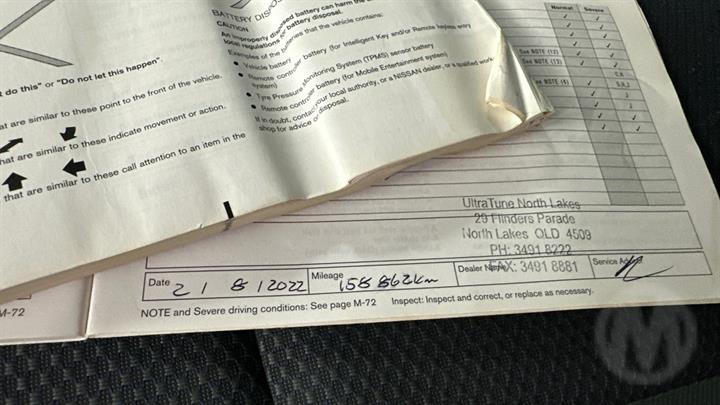 BATTERY DISPOS
CAUTION
An improperly disposed battery can harm the
local regulations for battery disposal.
Examples of the batteries that the vehicle contains:
• Vehicle battery
• Remote controller battery (for Intelligent Key and/or Remote keyless entry
system)
• Tyre Pressure Monitoring System (TPMS) sensor battery
• Remote controller battery (for Mobile Entertainment system)
If in doubt, contact your local authority, or a NISSAN dealer, or a qualified work-
shop for advice on disposal.
t do this" or "Do not let this happen".
at are similar to these point to the front of the vehicle.
hat are similar to these indicate movement or action.
that are similar to these call attention to an item in the
Normal Severe
See NOTE (12)
See NOTE (13)
ee NOTE (6)
UltraTune North Lakes
29 Flinders Parade
North Lakes QLD 4509
PH: 3491 8222
FAX: 3491 8881
Date 2 1 8 1 2022 Mileage 158 862km Dealer Name Service Ad
NOTE and Severe driving conditions: See page M-72 Inspect: Inspect and correct, or replace as necessary.
M-72
M